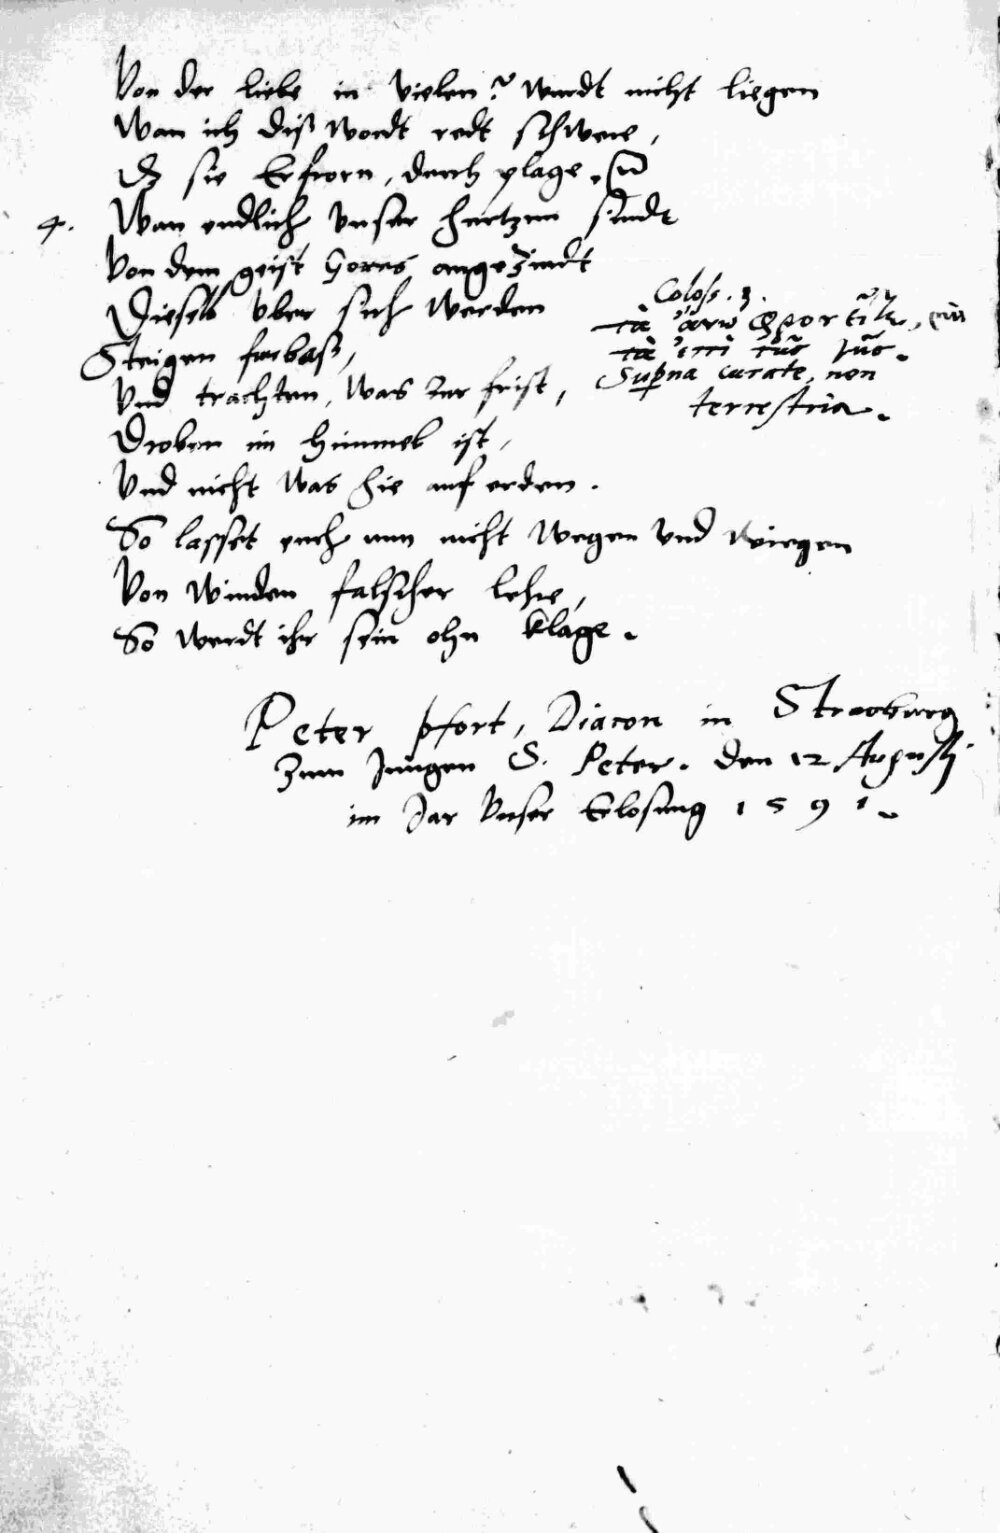 Von der liebe in vielen? wurdt nicht liegen
Wan ich diß wordt redt schwere,
Dz sie Erfrorn, durch plage.
4. Wan endlich unser hertzen sindt
Von dem geist Gottes angezindt
Dieselb uber sich werden
Steigen furbaß,
Und trachten, was zur frist,
Droben im himmel ist,
Und nicht was hie auf erden.
Coloss. 3.
τὰ ἄνω φρονεῖτε, μὴ
τὰ ἐπὶ τῆς γῆς.
Supna curate, non
terrestria.
So lasset euch nun nicht wegen und wiegen
Von winden falscher lehre,
So werdt ihr sein ohn klage.
Peter Pfort, Diacon in Strasburg
zum Jungen S. Peter. den 12 Augusti
im Jar unser Erlosung 1591.